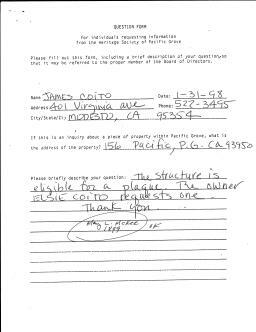 QUESTION FORM
For individuals requesting information
from the Heritage Society of Pacific Grove
Please fill out this form, including a brief description of your question, so
that it may be referred to the proper member of the Board of Directors.
Name JAMES COITO Date: 1-31-98
Address: 401 Virginia ave Phone: 522-3495
City/State/Zip MODESTO, CA 95354
If this is an inquiry about a piece of property within Pacific Grove, what is
the address of the property? 156 Pacific, P.G. CA 93950
Please briefly describe your question: The structure is
eligible for a plaque. The owner
ELSIE COITO requests one.
Thank you.
L. McKee
1889 OK